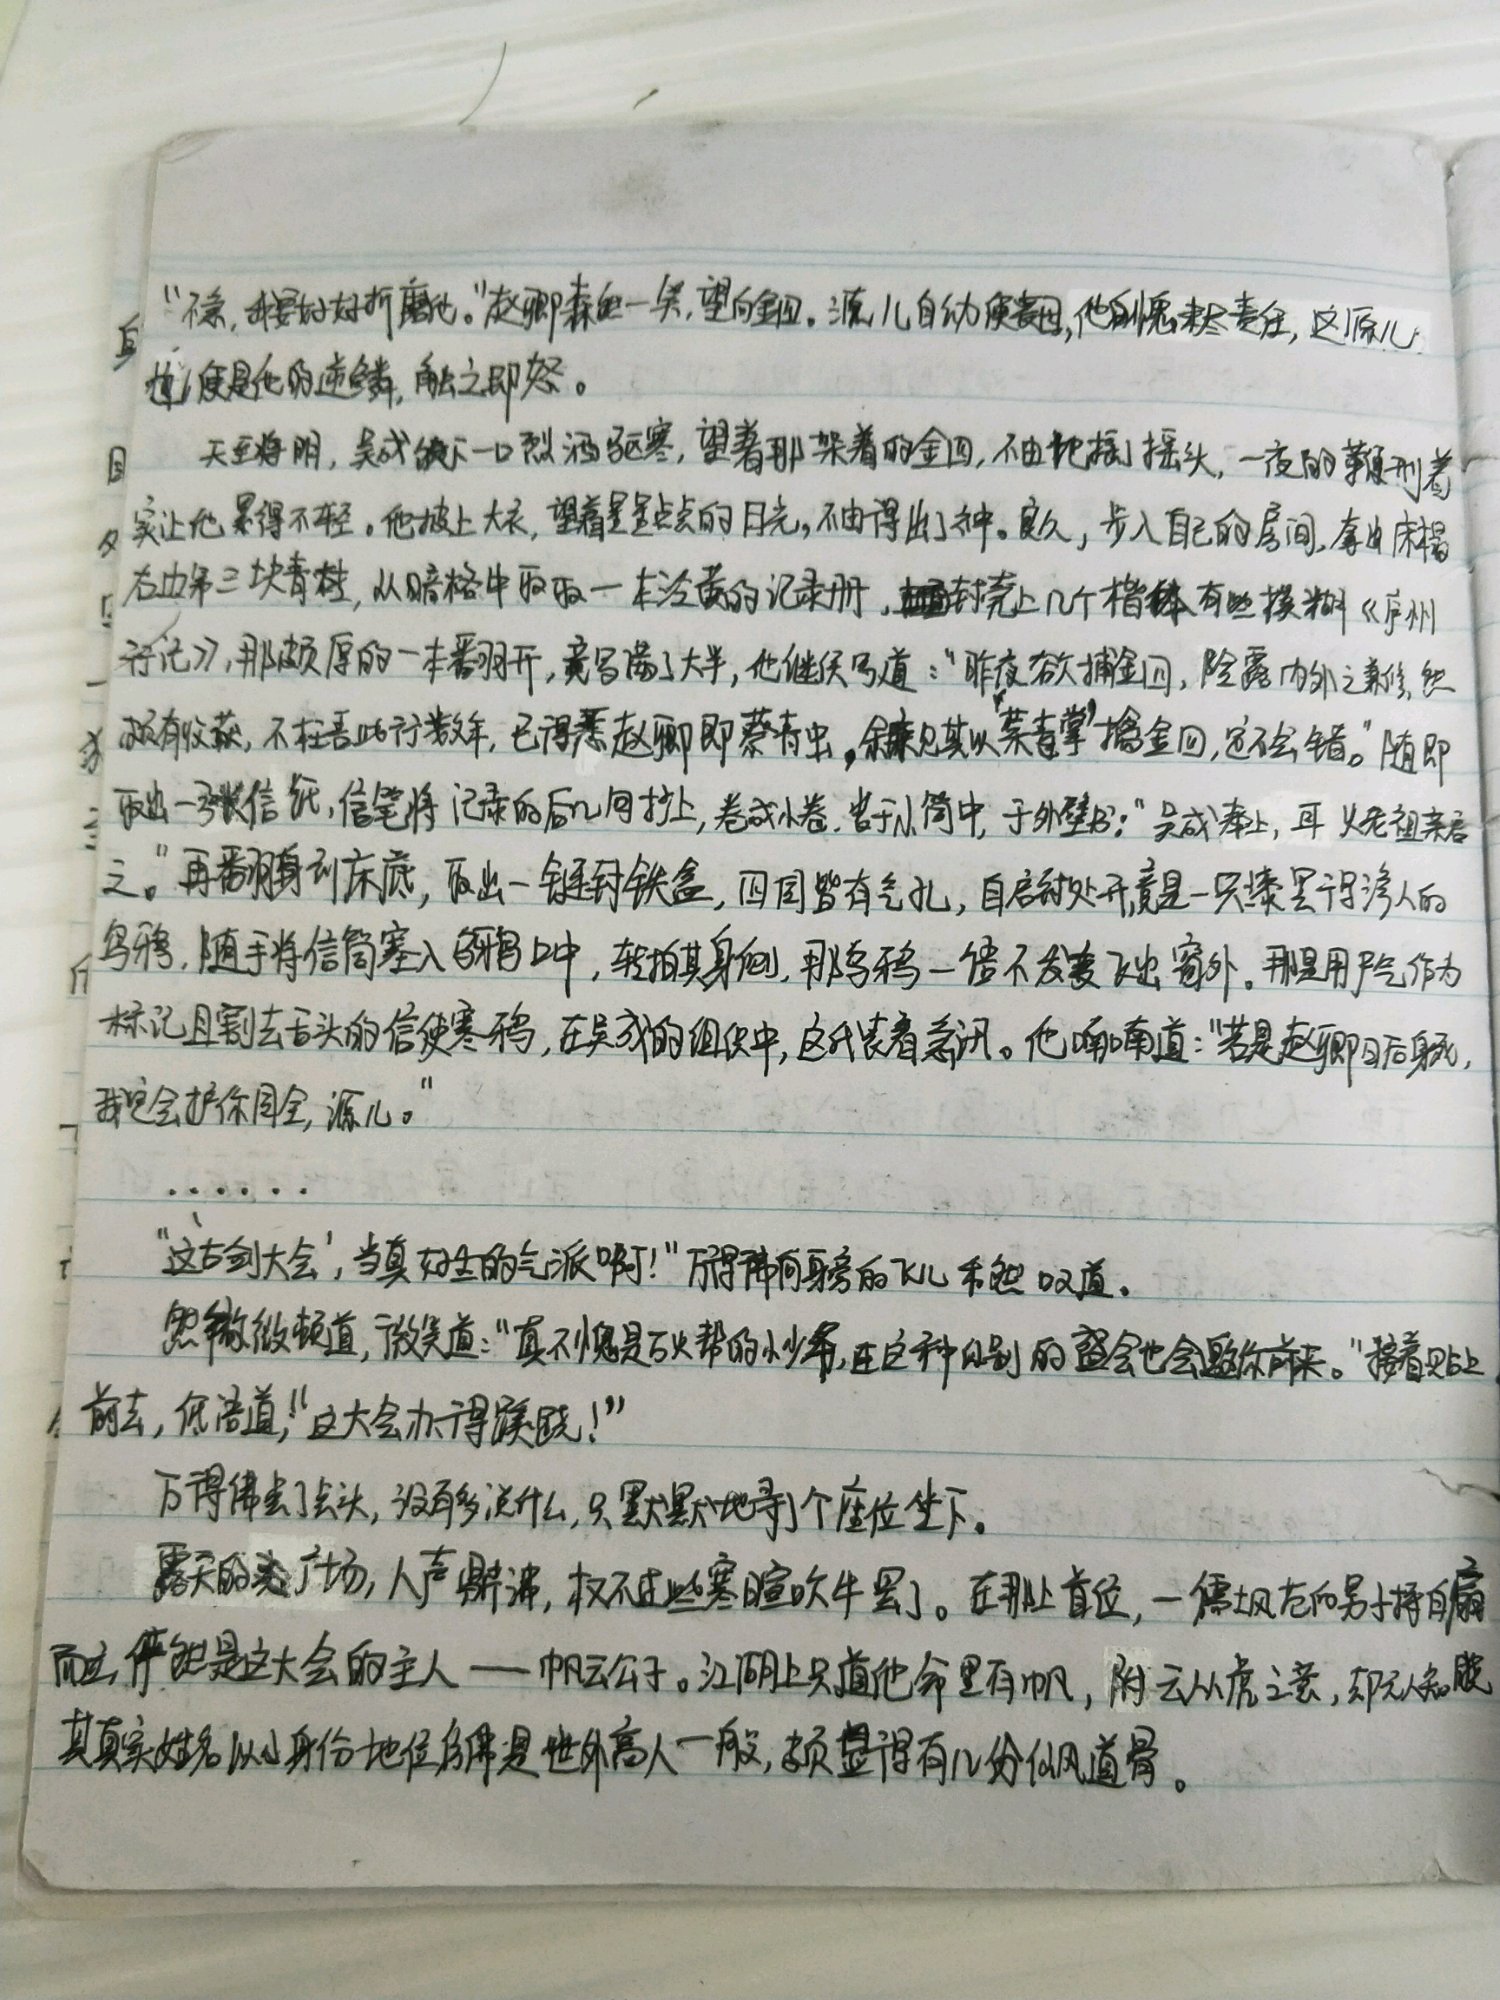 "不急，我要好好折磨他。"赵卿森然一笑，望向金四。源儿自幼便丧母，他自愧未尽责任，这源儿
便是他的逆鳞，触之即怒。
天至将明，吴成饮下一口烈酒驱寒，望着那架着的金四，不由地摇了摇头，一夜的鞭刑着
实让他累得不轻。他披上大衣，望着星星点点的日光，不由得出了神。良久，步入自己的房间，拿出床榻
右边第三块青砖，从暗格中取出一本泛黄的记录册，封壳上几个楷体有些模糊《庐州
行记》，那颇厚的一本翻开，竟写满了大半，他继续写道："昨夜欲捕金四，险露内外之兼修，然
颇有收获，不枉吾此行数年，已得悉赵卿即蔡青虫，余见其以"蔡青掌"擒金四，定不会错。"随即
取出一张信纸，信笔将记录的后几句抄上，卷成小卷，皆于小筒中，于外壁书："吴成奉上，耳火老祖亲启
之。"再翻身到床底，取出一锤封铁盒，四周皆有气孔，自启封处开，竟是一只漆黑得渗人的
乌鸦，随手将信筒塞入乌鸦口中，轻拍其身侧，那乌鸦一语不发飞出窗外。那是用气作为
标记且割去舌头的信使寒鸦，在吴成的组织中，这代表着急讯。他喃喃道："若是赵卿日后身死，
我定会护你周全，源儿。"
......
"这'古剑大会'，当真好生的气派啊！"万得佛向身旁的飞儿 叹道。
微微顿道，微笑道："真不愧是石火帮的小少爷，在这种级别的盛会也会邀你前来。"接着贴上
前去，低语道，"这大会办得蹊跷！"
万得佛点了点头，没有多说什么，只默默地寻了个座位坐下。
露天的广场，人声鼎沸，权不过些寒暄吹牛罢了。在那上首位，一儒士风范的男子持白扇
而立，俨然是这大会的主人——帆云公子。江湖上只道他命里有帆，附云从虎之意，却无人知晓
其真实姓名，以身份地位仿佛是世外高人一般，颇显得有几份仙风道骨。